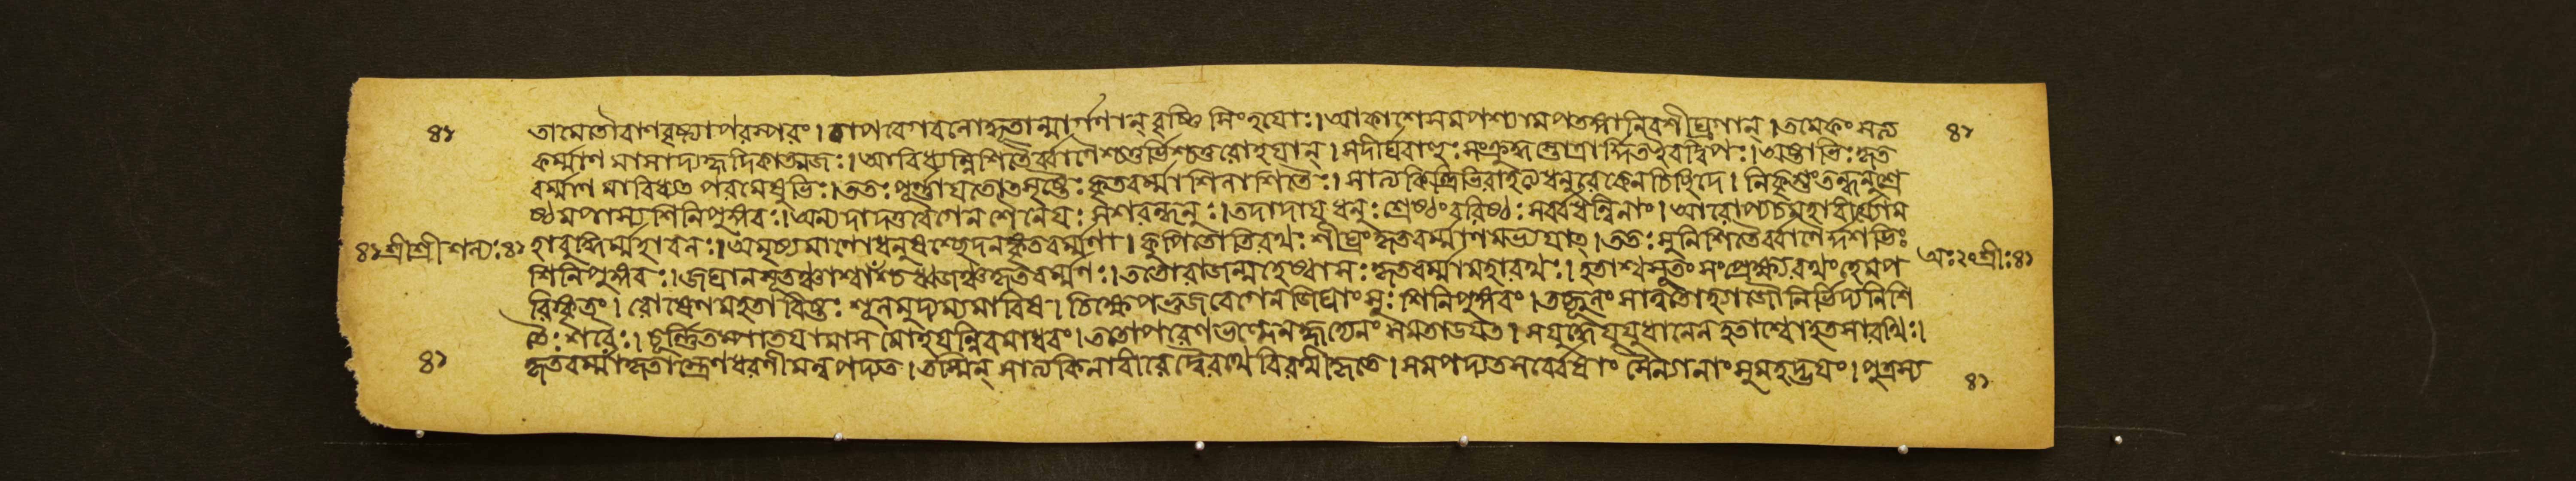 ৪১ তামেতৌবাণবৃষ্ট্যাপরস্পরং। চাপবেগবলোদ্ধূতান্মার্গণান্ বৃষ্ণি সিংহযোঃ। আকাশেসমপশ্যামপতঙ্গানিবশীঘ্রগান্। তমেকং সত্য ৪১
কর্ম্মাণ মাসাদ্যহৃদিকাত্মজঃ। আবিধ্যন্নিশিতৈর্ব্বাণৈশ্চতুর্ভিশ্চতুরোহযান্। সদীর্ঘবাহুঃ সংক্রুদ্ধস্তোত্রার্দ্দিতইবদ্বিপঃ। অষ্টাভিঃ কৃত
বর্ম্মাণ মাবিধ্যত পরমেষুভিঃ। ততঃ পূর্ণ্ণাযতোৎসৃষ্টৈঃ কৃতবর্ম্মাশিলাশিতৈঃ। সাত্যকিন্ত্রিভিরাহত্যধনুরেকেনচিচ্ছিদে। নিকৃত্তংতদ্ধনুশ্রে
ষ্ঠমপাস্যশিনিপুঙ্গবঃ। অন্যদাদত্তবেগেন শৈনেযঃ সশরন্ধনুঃ। তদাদাযধনুঃ শ্রেষ্ঠংবরিষ্ঠঃ সর্ব্বধন্বিনাং। আরোপ্যচমহাবীর্য্যোম
৪১ শ্রীশ্রী শল্যঃ ৪১ হাবুদ্ধির্ম্মহাবলঃ। অমৃষ্যমাণোধনুষশ্ছেদনংকৃতবর্ম্মণা। কুপিতোতিরথঃ শীঘ্রংকৃতবর্ম্মাণমভ্যযাত্। ততঃ সুনিশিতৈর্ব্বাণৈর্দ্দশভিঃ
শিনিপুঙ্গবঃ। জঘানসূতঞ্চাশ্বাংশ্চধ্বজঞ্চকৃতবর্ম্মণঃ। ততোরাজন্মহেষ্বাসঃ কৃতবর্ম্মামহারথঃ। হতাশ্বসূতং সংপ্রেক্ষ্যরথংহেমপ অঃ ২০ শ্রীঃ ৪১
রিষ্কৃতং। রোষেণমহতাবিষ্টঃ শূলমুদ্যম্যমাবিষ। চিক্ষেপভুজবেগেনজিঘাংসুঃ শিনিপুঙ্গবং। তচ্ছূলং সাত্বতোহ্যাজৌনির্ভিদ্যনিশি
তৈঃ শরৈঃ। চূর্ণ্ণিতম্পাতযামাস মোহযন্নিবমাধবং। ততোপরেণভল্লেনহৃদ্যেনং সমতাডযত। সযুদ্ধেযুযুধানেন হতাশ্বোহতসারথিঃ।
৪১ কৃতবর্ম্মাকৃতাস্ত্রেণধরণীমন্বপদ্যত। তস্মিন্ সাত্যকিনাবীরেদ্বৈরথেবিরথীকৃতে। সমপদ্যতসর্ব্বেষাং সৈন্যানাংসুমহদ্ভযং। পুত্রস্য ৪১